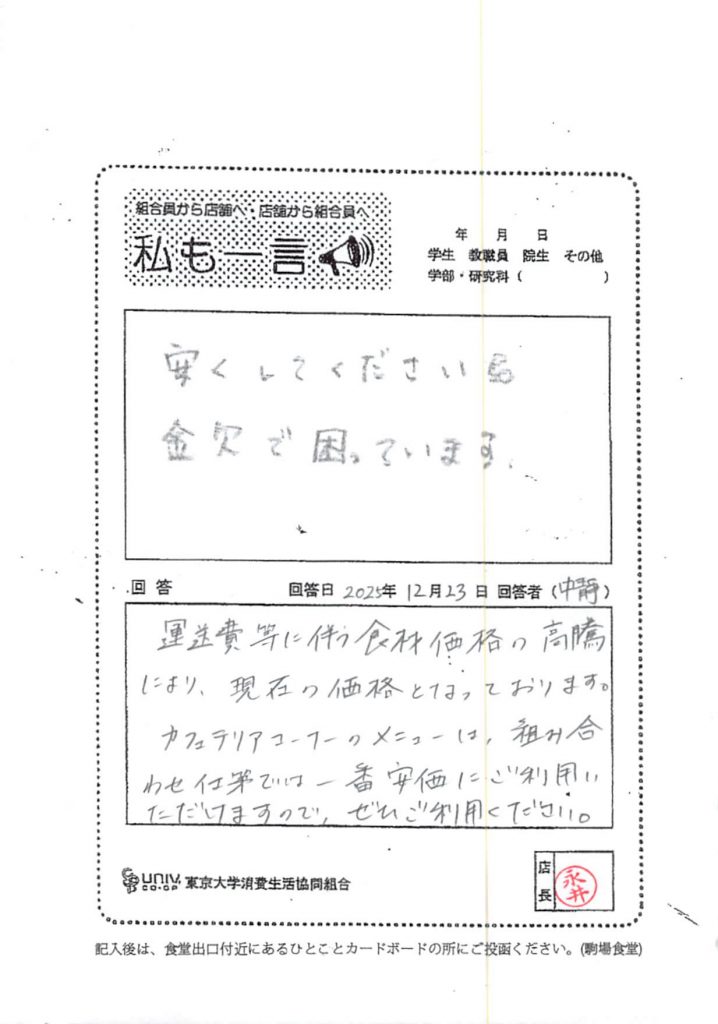 組合員から店舗へ・店舗から組合員へ
私も一言
年 月 日
学生 教職員 院生 その他
学部・研究科 ( )
安くしてください
金欠で困っています.
回答 回答日 2025年 12月23日 回答者 (中静)
運送費等に伴う食材価格の高騰
により、現在の価格となっております。
カフェテリアコーナーのメニューは、組み合
わせ仕第では一番安価にご利用い
ただけますので、ぜひご利用ください。
UNIV. CO-OP 東京大学消費生活協同組合
店長 永井
記入後は、食堂出口付近にあるひとことカードボードの所にご投函ください。(駒場食堂)